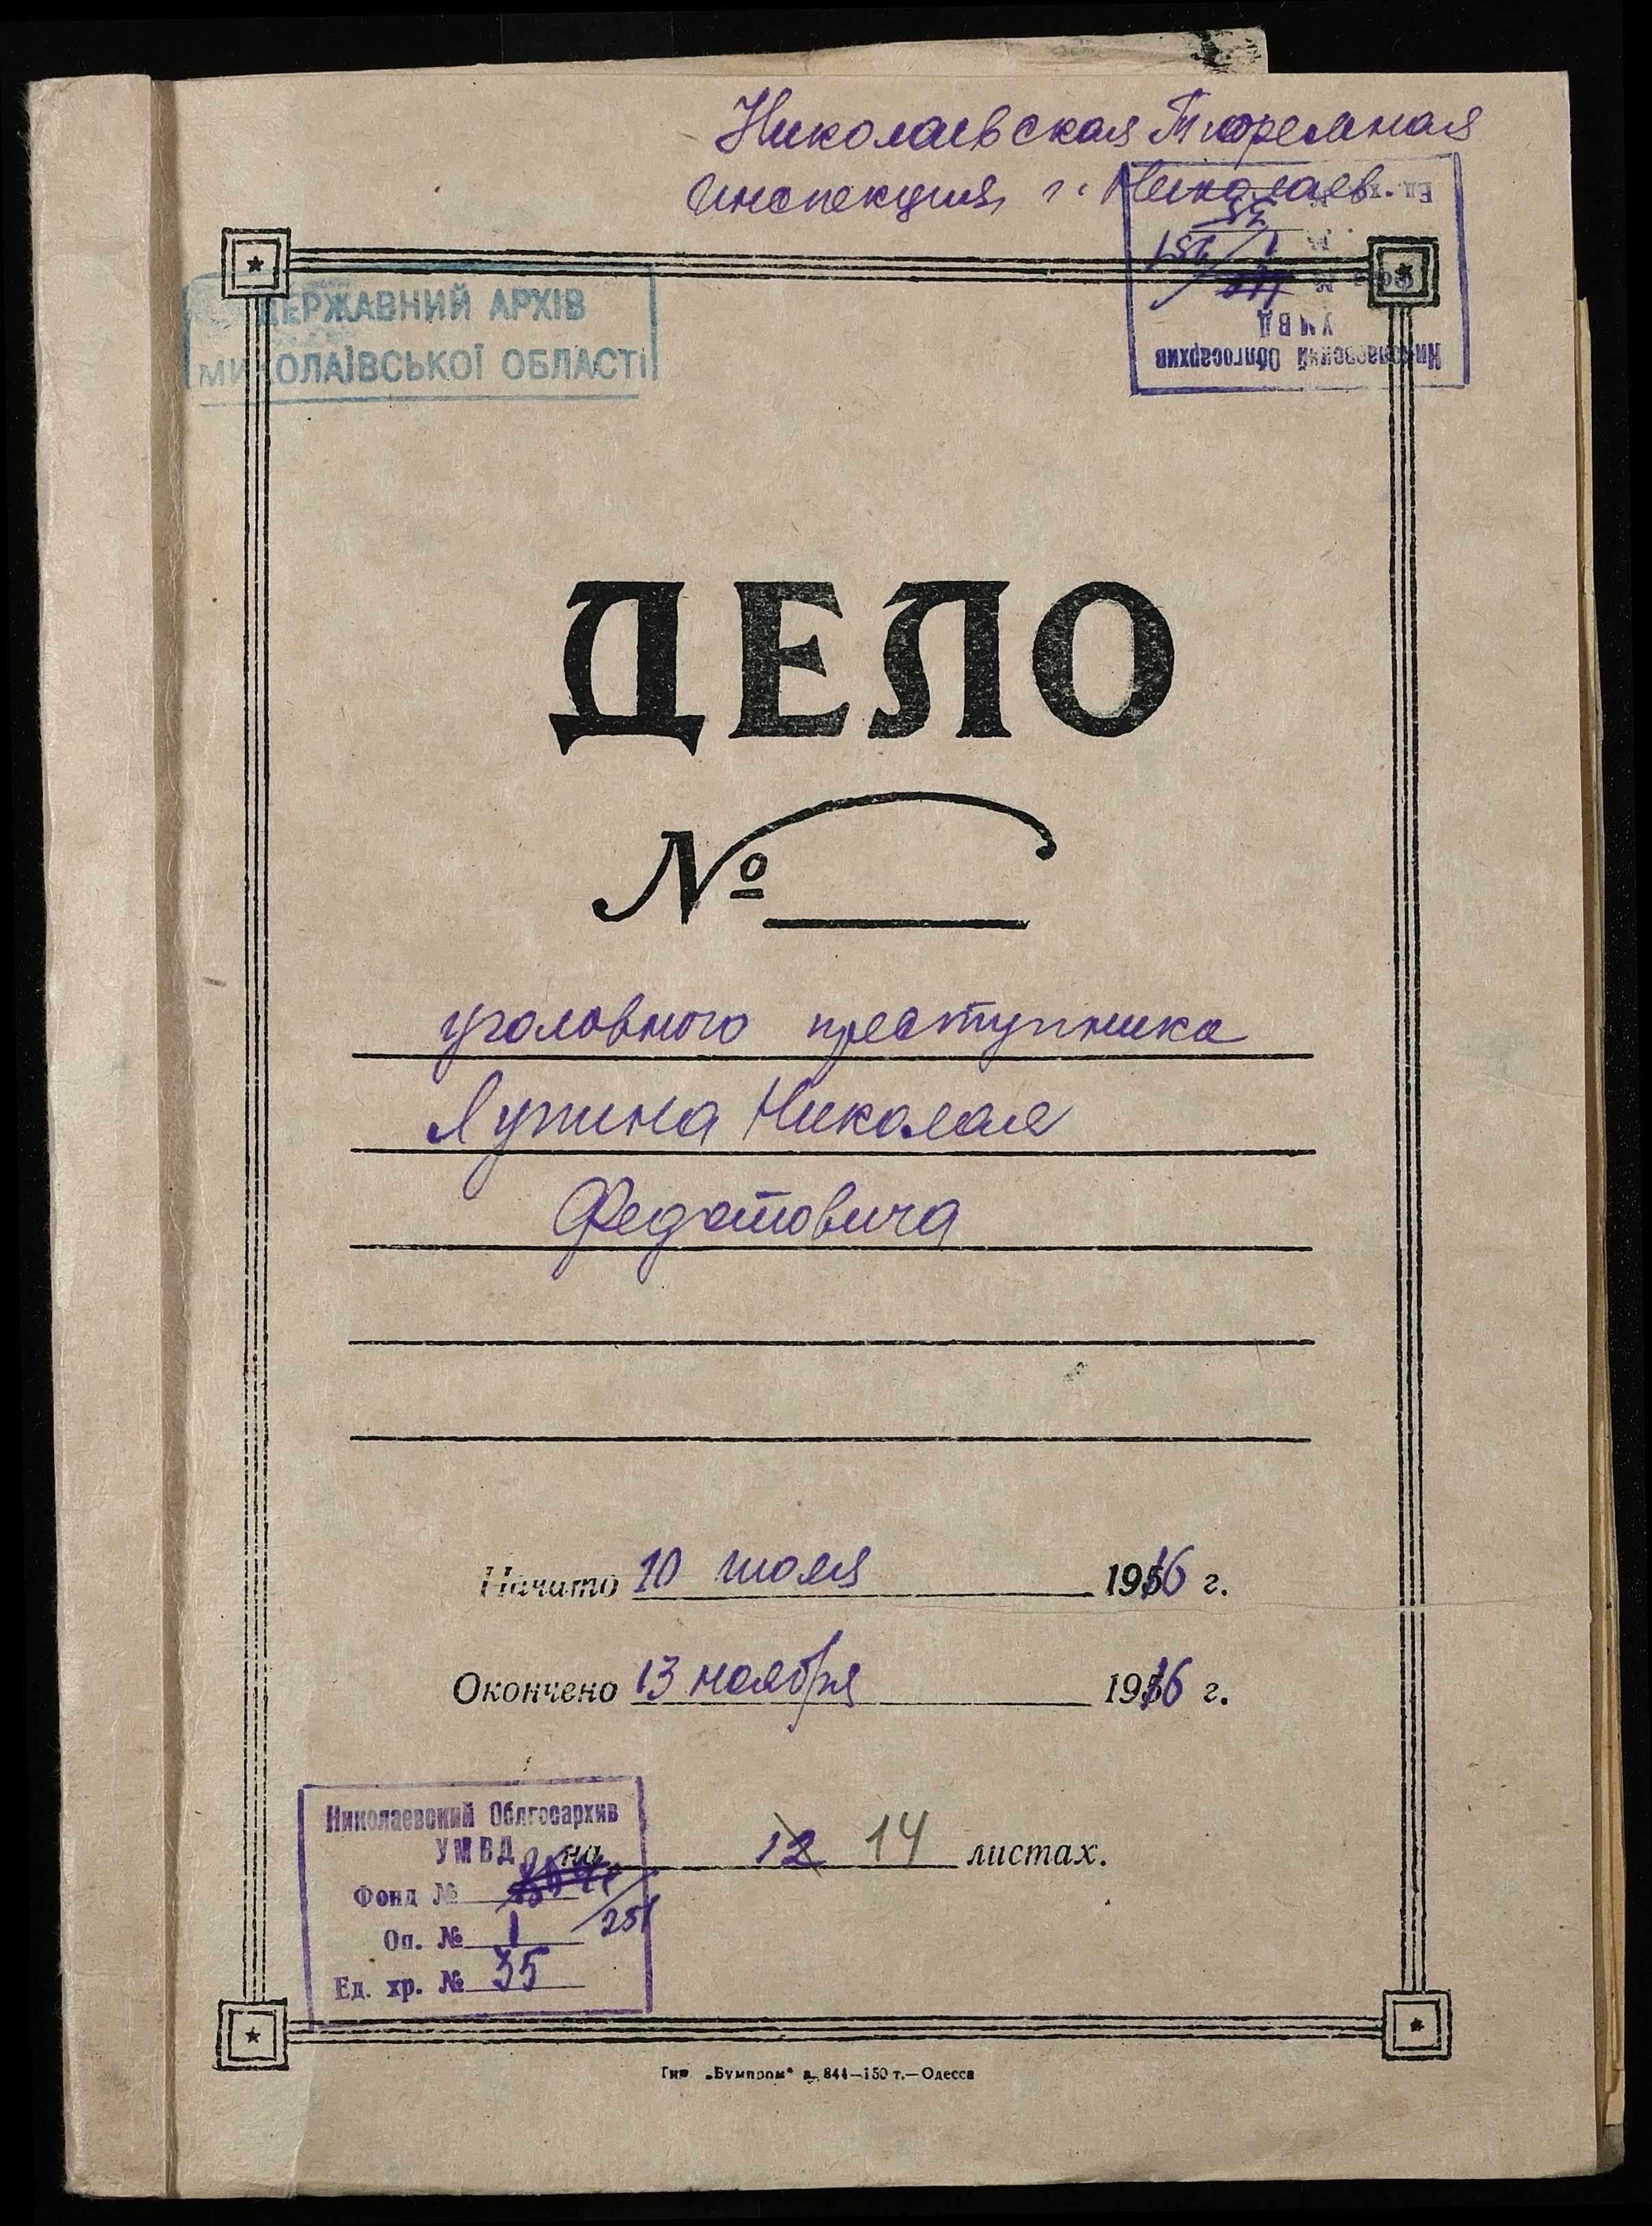 Николаевская Тюремная
Инспекция, г. Николаев.
ДЕРЖАВНИЙ АРХІВ
МИКОЛАЇВСЬКОЇ ОБЛАСТІ
Николаевский Облгосархив
УМВД
Фонд №
251
№ 1
Ед. хр. № 35
ДЕЛО
№
уголовного преступника
Лупина Николая
Федотовича
Начато 10 июля 1916 г.
Окончено 13 ноября 1916 г.
на 12 14 листах.
Николаевский Облгосархив
УМВД
Фонд № 251
Оп. № 1
Ед. хр. № 35
Тип. „Бумпром" з. 844—150 т.—Одесса